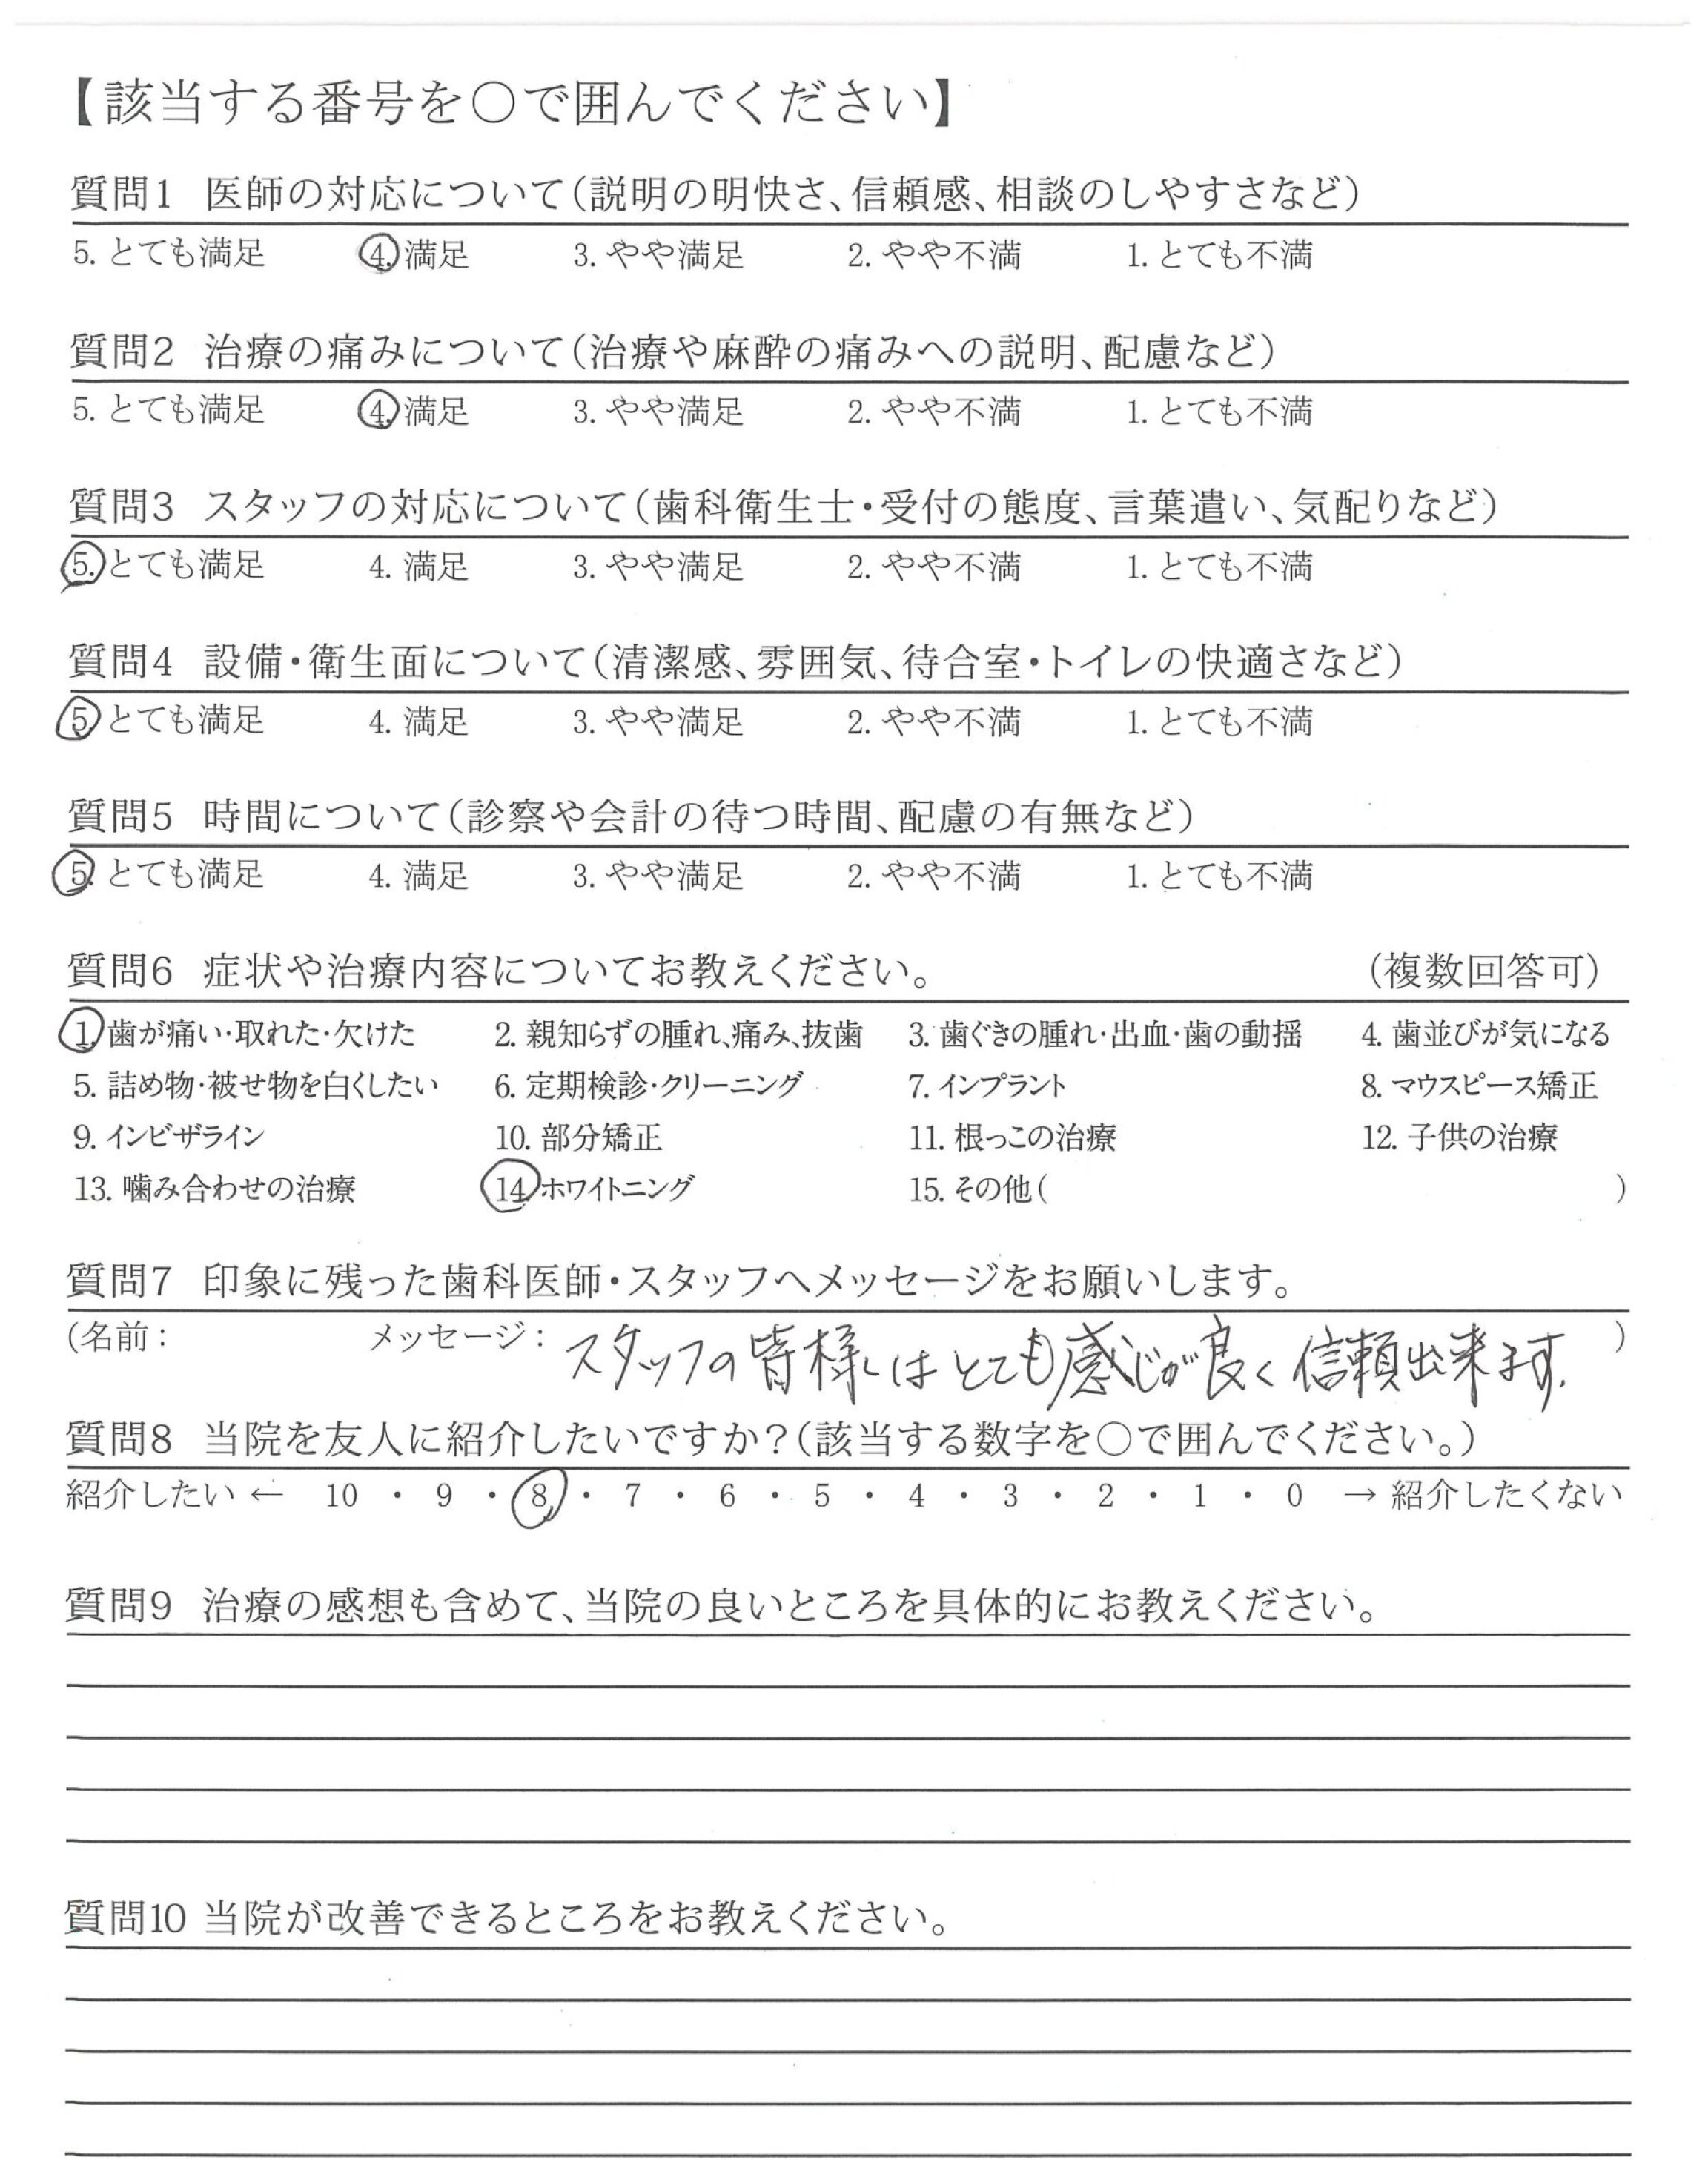 【該当する番号を○で囲んでください】
質問1 医師の対応について(説明の明快さ、信頼感、相談のしやすさなど)
5. とても満足 4. 満足 3. やや満足 2. やや不満 1. とても不満
質問2 治療の痛みについて(治療や麻酔の痛みへの説明、配慮など)
5. とても満足 4. 満足 3. やや満足 2. やや不満 1. とても不満
質問3 スタッフの対応について(歯科衛生士・受付の態度、言葉遣い、気配りなど)
5. とても満足 4. 満足 3. やや満足 2. やや不満 1. とても不満
質問4 設備・衛生面について(清潔感、雰囲気、待合室・トイレの快適さなど)
5. とても満足 4. 満足 3. やや満足 2. やや不満 1. とても不満
質問5 時間について(診察や会計の待つ時間、配慮の有無など)
5. とても満足 4. 満足 3. やや満足 2. やや不満 1. とても不満
質問6 症状や治療内容についてお教えください。 (複数回答可)
1. 歯が痛い・取れた・欠けた 2. 親知らずの腫れ、痛み、抜歯 3. 歯ぐきの腫れ・出血・歯の動揺 4. 歯並びが気になる
5. 詰め物・被せ物を白くしたい 6. 定期検診・クリーニング 7. インプラント 8. マウスピース矯正
9. インビザライン 10. 部分矯正 11. 根っこの治療 12. 子供の治療
13. 噛み合わせの治療 14. ホワイトニング 15. その他( )
質問7 印象に残った歯科医師・スタッフへメッセージをお願いします。
(名前: メッセージ: スタッフの皆様はとても感じが良く信頼出来ます. )
質問8 当院を友人に紹介したいですか?(該当する数字を○で囲んでください。)
紹介したい ← 10 ・ 9 ・ 8 ・ 7 ・ 6 ・ 5 ・ 4 ・ 3 ・ 2 ・ 1 ・ 0 → 紹介したくない
質問9 治療の感想も含めて、当院の良いところを具体的にお教えください。
質問10 当院が改善できるところをお教えください。